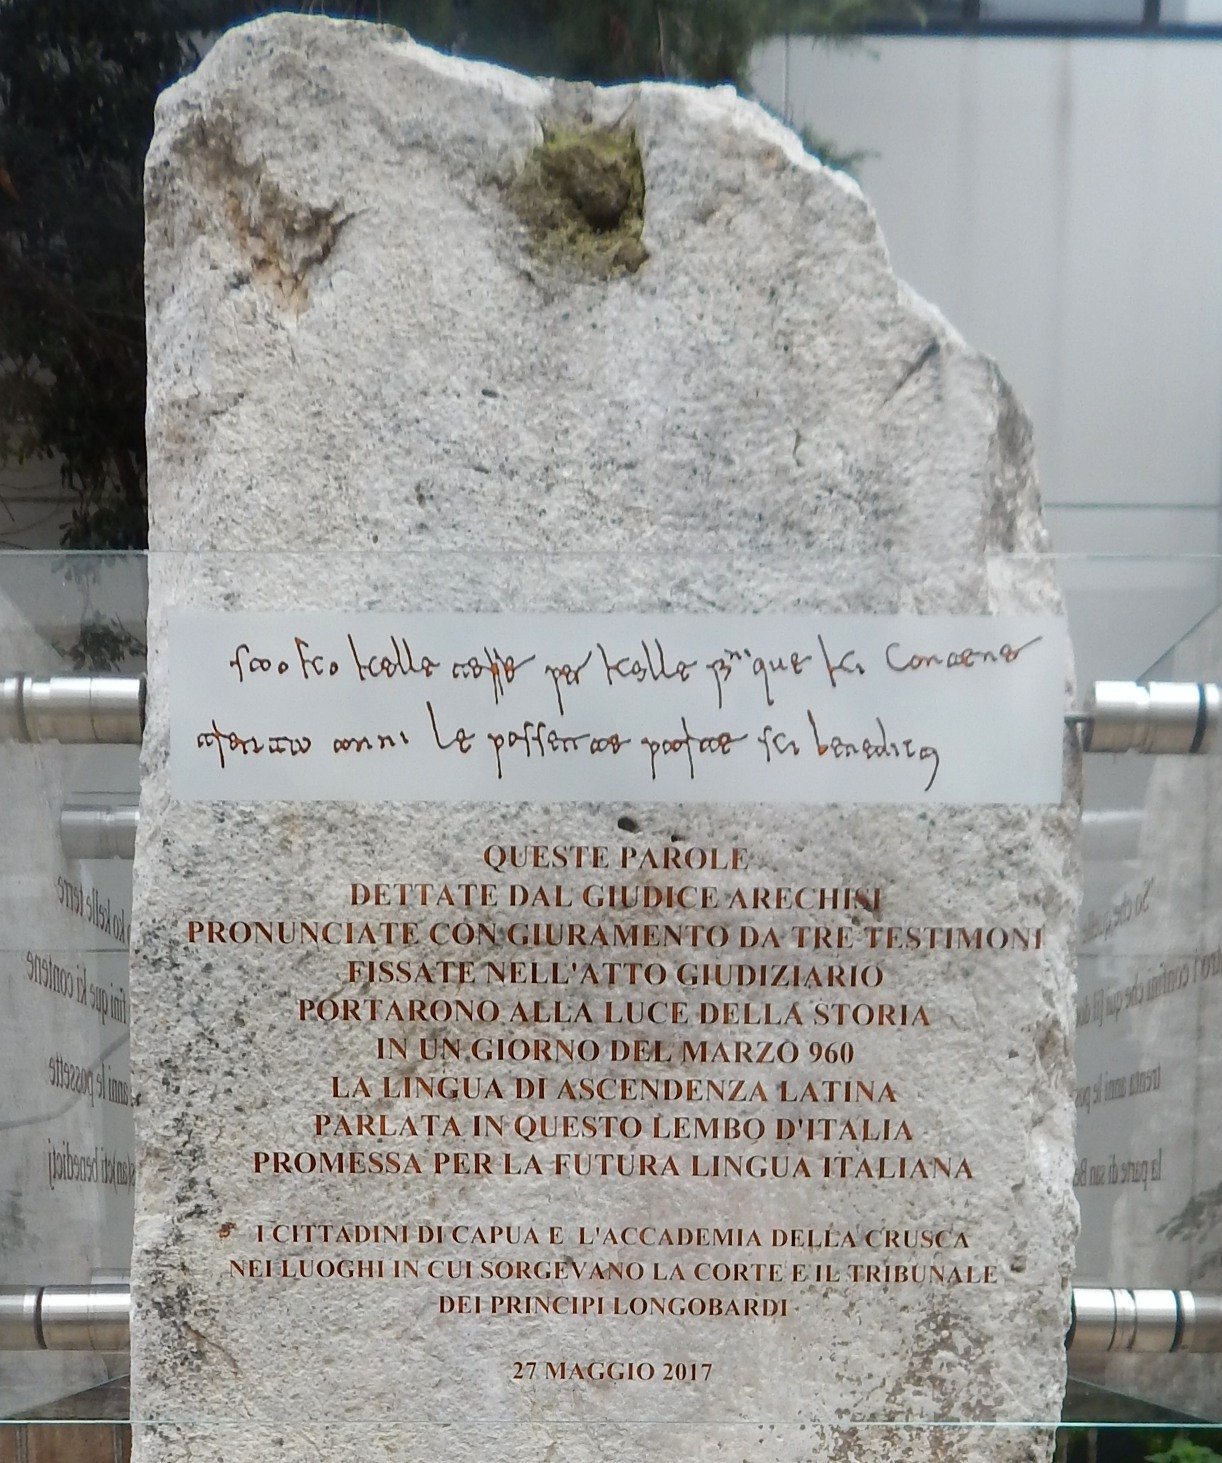 sao ko kelle terre per kelle fini que ki contene
trenta anni le possette parte sci benedicti
QUESTE PAROLE
DETTATE DAL GIUDICE ARECHISI
PRONUNCIATE CON GIURAMENTO DA TRE TESTIMONI
FISSATE NELL'ATTO GIUDIZIARIO
PORTARONO ALLA LUCE DELLA STORIA
IN UN GIORNO DEL MARZO 960
LA LINGUA DI ASCENDENZA LATINA
PARLATA IN QUESTO LEMBO D'ITALIA
PROMESSA PER LA FUTURA LINGUA ITALIANA
I CITTADINI DI CAPUA E L'ACCADEMIA DELLA CRUSCA
NEI LUOGHI IN CUI SORGEVANO LA CORTE E IL TRIBUNALE
DEI PRINCIPI LONGOBARDI
27 MAGGIO 2017
ko kelle terre
fini que ki contene
anni le possette
s(an)cti benedicti
So che quelle
confini che qui
trenta anni le
la parte di san